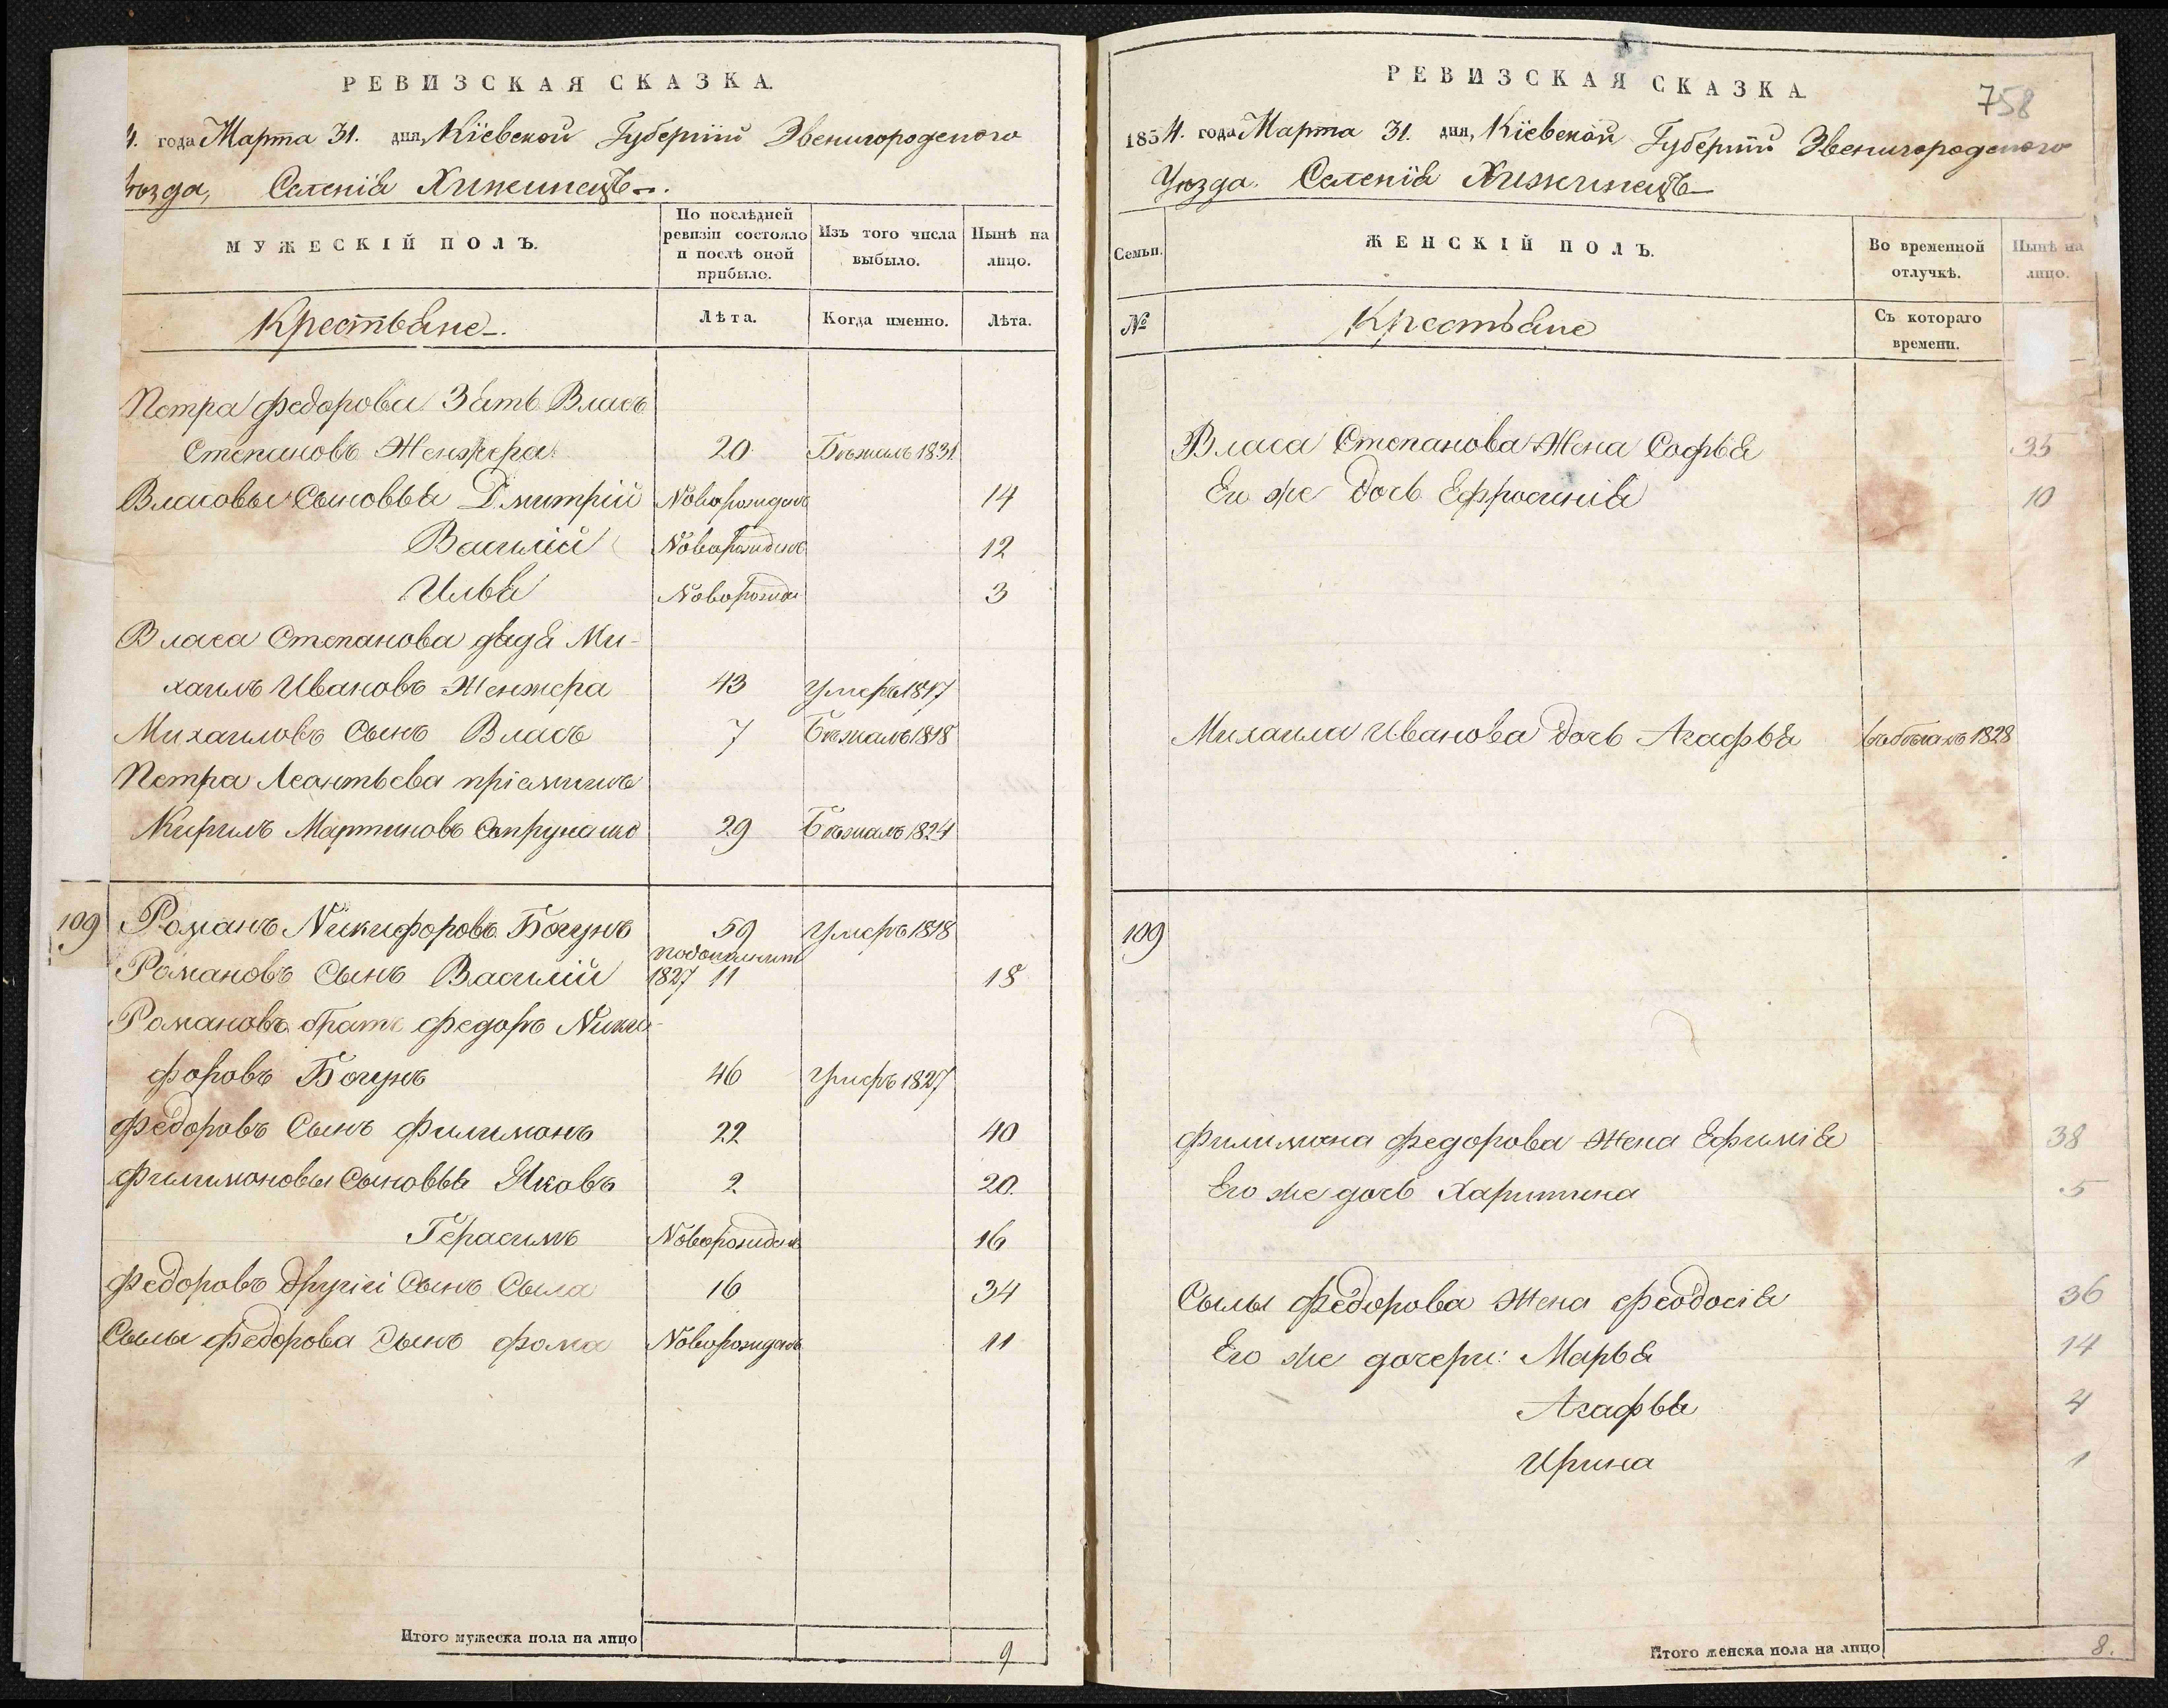 РЕВИЗСКАЯ СКАЗКА.
4. года Марта 31. дня, Кіевской Губерніи Звенигородскаго
ѣзда, Селенія Хижинецъ.
МУЖЕСКІЙ ПОЛЪ.
По послѣдней ревизіи состояло и послѣ оной прибыло.
Изъ того числа выбыло.
Нынѣ на лицо.
Крестьяне.
Лѣта.
Когда именно.
Лѣта.
Петра Федорова Зять Власъ
Степановъ Женжера 20 Бѣжалъ 1831
Власовы Сыновья Дмитрій Новорожденъ 14
Василій Новорожденъ 12
Илья Новорожде 3
Власа Степанова дядя Ми-
хаилъ Ивановъ Женжера 43 Умеръ 1847
Михаиловъ Сынъ Власъ 7 Бѣжалъ 1848
Петра Леонтьева пріемышъ
Кирилъ Мартиновъ 29 Бѣжалъ 1824
109 Романъ Никифоровъ Богунъ 59 Умеръ 1848
Романовъ Сынъ Василій 1827 11 18
Романовъ братъ Федоръ Ники-
форовъ Богунъ 46 Умеръ 1827
Федоровъ Сынъ Филимонъ 22 40
Филимоновы Сыновья Яковъ 2 20.
Герасимъ Новорожденъ 16
Федоровъ другій Сынъ Сыла 16 34
Сылы Федорова Сынъ Фома Новорожденъ 11
Итого мужеска пола на лицо 9
758
РЕВИЗСКАЯ СКАЗКА
1854. года Марта 31. дня, Кіевской Губерніи Звенигородскаго
Уѣзда. Селенія Хижинецъ
Семьи.
ЖЕНСКІЙ ПОЛЪ.
Во временной отлучкѣ.
Нынѣ на лицо.
№
Крестьяне
Съ котораго времени.
Власа Степанова Жена Софья 35
Его же дочь Ефросинія 10
Михаила Иванова дочь Агафья 1828
109
Филимона Федорова Жена Ефимія 38
Его же дочь Харитина 5
Сылы Федорова Жена Феодосія 36
Его же дочери: Марья 14
Агафья 4
Ирина 1
Итого женска пола на лицо 8.